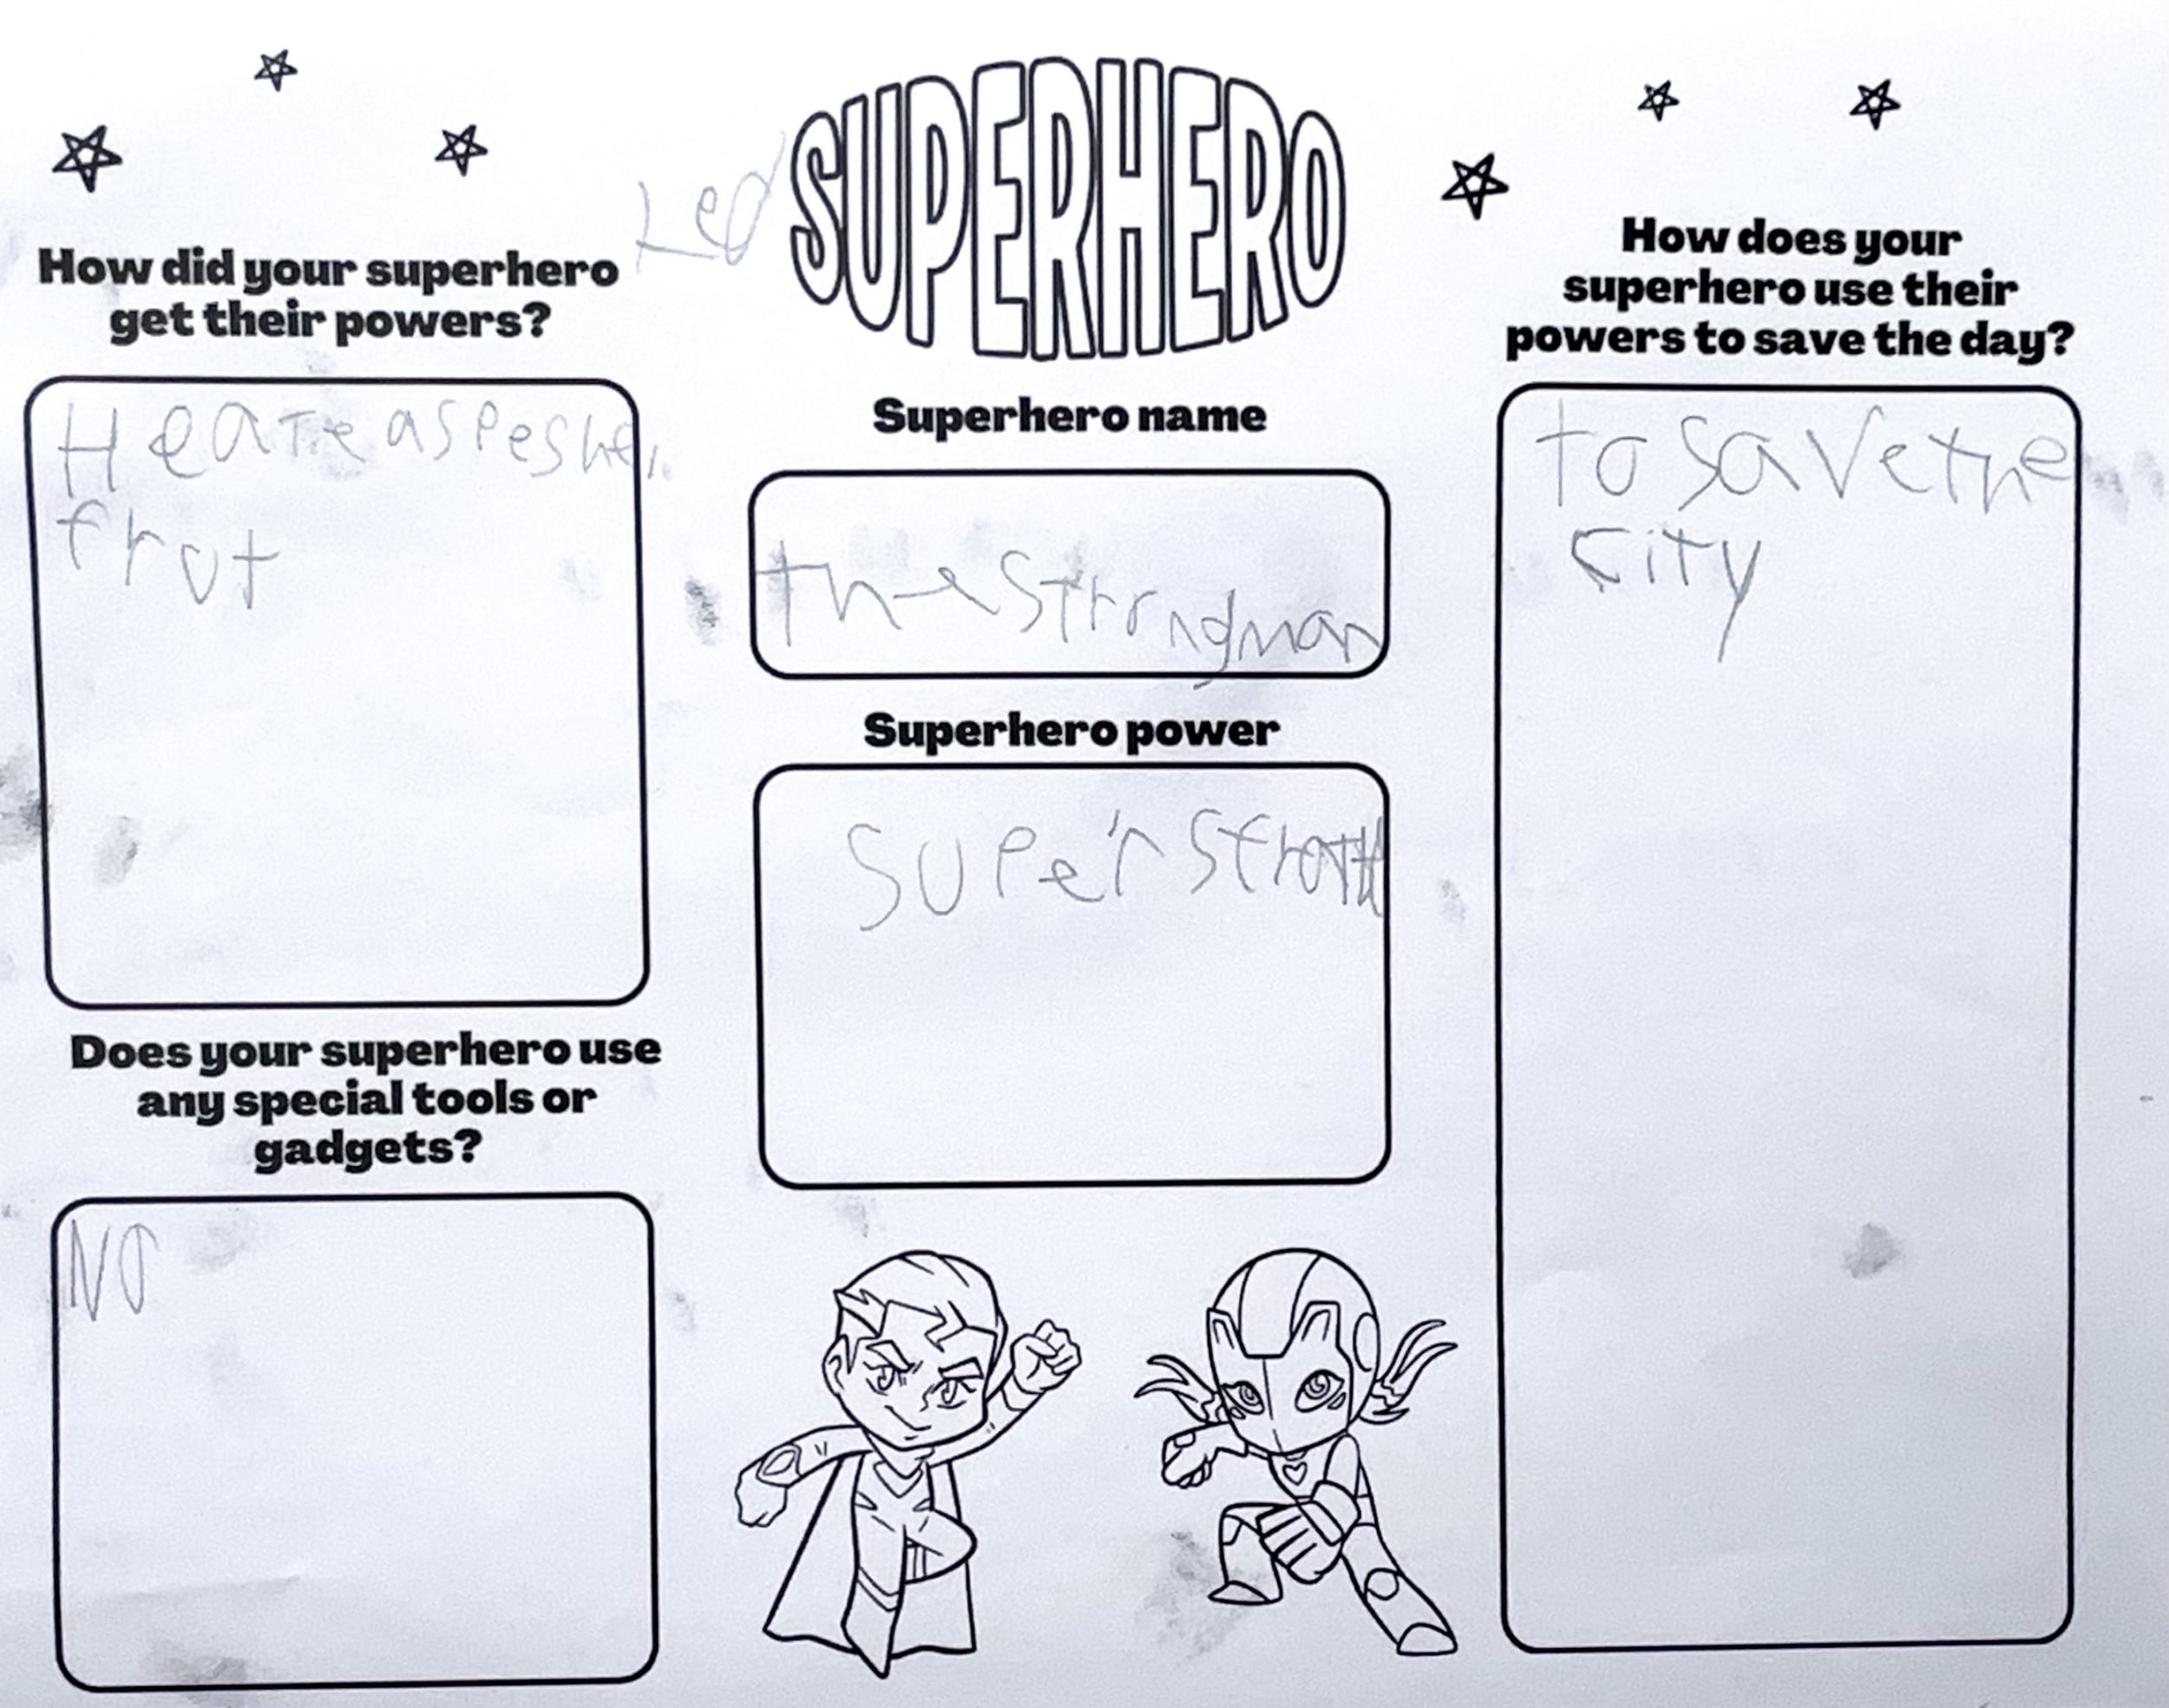 Leo
SUPERHERO
How did your superhero
get their powers?
Heateaspeshel
frut
Does your superhero use
any special tools or
gadgets?
NO
Superhero name
thestrongman
Superhero power
Super
How does your
superhero use their
powers to save the day?
to savethe
City